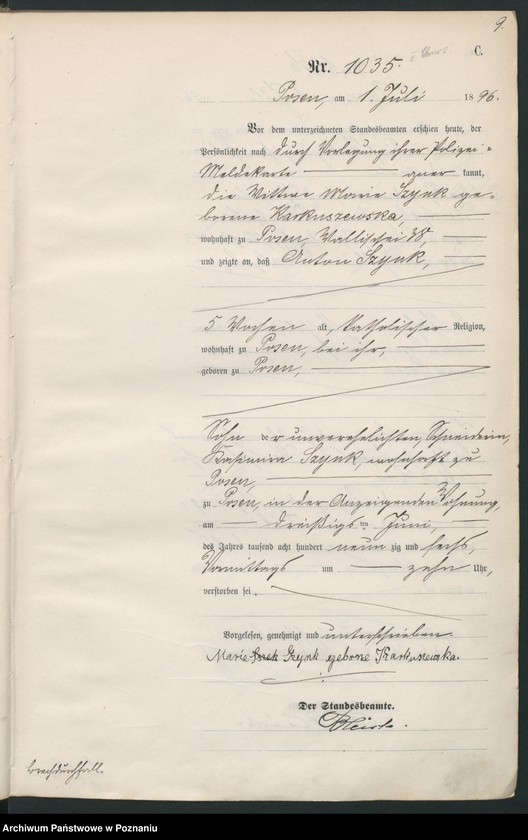 9.
C.
Nr. 1035.
Posen, am 1. Juli 1896.
Vor dem unterzeichneten Standesbeamten erschien heute, der
Persönlichkeit nach durch Vorlegung ihrer Polizei-
Meldekarte anerkannt,
die Wittwe Marie Szynk ge-
borene Karkuszewska,
wohnhaft zu Posen, Wallischei 78,
und zeigte an, daß Anton Szynk,
5 Wochen alt, katholischer Religion,
wohnhaft zu Posen, bei ihr,
geboren zu Posen,
Sohn der unverehelichten Schneiderin,
Kasimira Szynk, wohnhaft zu
Posen,
zu Posen, in der Anzeigenden Wohnung,
am dreißigsten Juni,
des Jahres tausend acht hundert neunzig und sechs,
Vormittags um zehn Uhr,
verstorben sei.
Vorgelesen, genehmigt und unterschrieben.
Marie Szynk geborne Karkuszewska.
Der Standesbeamte.
Brechdurchfall.
Archiwum Państwowe w Poznaniu